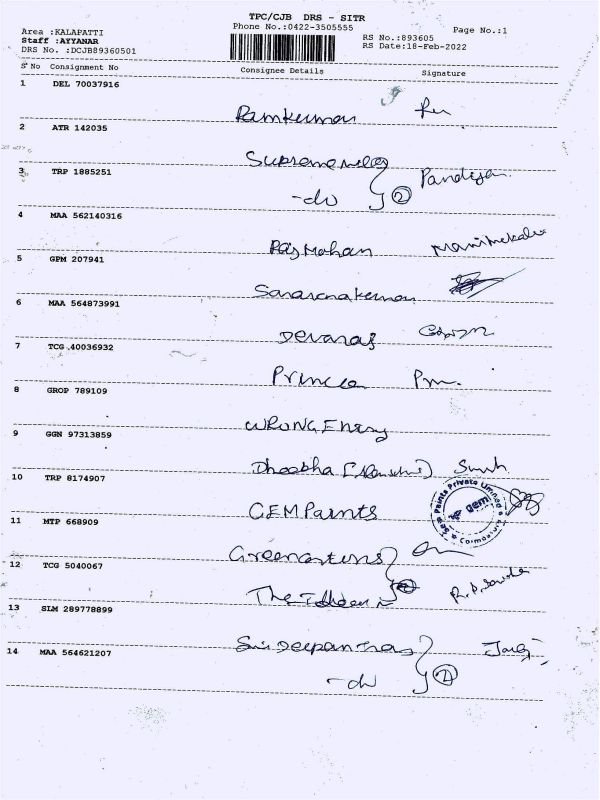 TPC/CJB DRS - SITR
Phone No.:0422-3505555
Page No.:1
Area :KALAPATTI
Staff :AYYANAR
DRS No. :DCJB89360501
RS No.:893605
RS Date:18-Feb-2022
S'No Consignment No Consignee Details Signature
1 DEL 70037916
Ramkumar
2 ATR 142035
3 TRP 1885251
Pandiyan
-do 2
4 MAA 562140316
Rajmohan Manimekalai
5 GPM 207941
Saravanakumar
6 MAA 564873991
Devaraj
7 TCG 40036932
Prince
8 GROP 789109
WRONG Entry
9 GGN 97313859
Dheebha
10 TRP 8174907
GEM Paints
Gem Paints Private Limited Coimbatore
gem
11 MTP 668909
12 TCG 5040067
The
13 SLM 289778899
Sri Deepan
14 MAA 564621207
-do 2